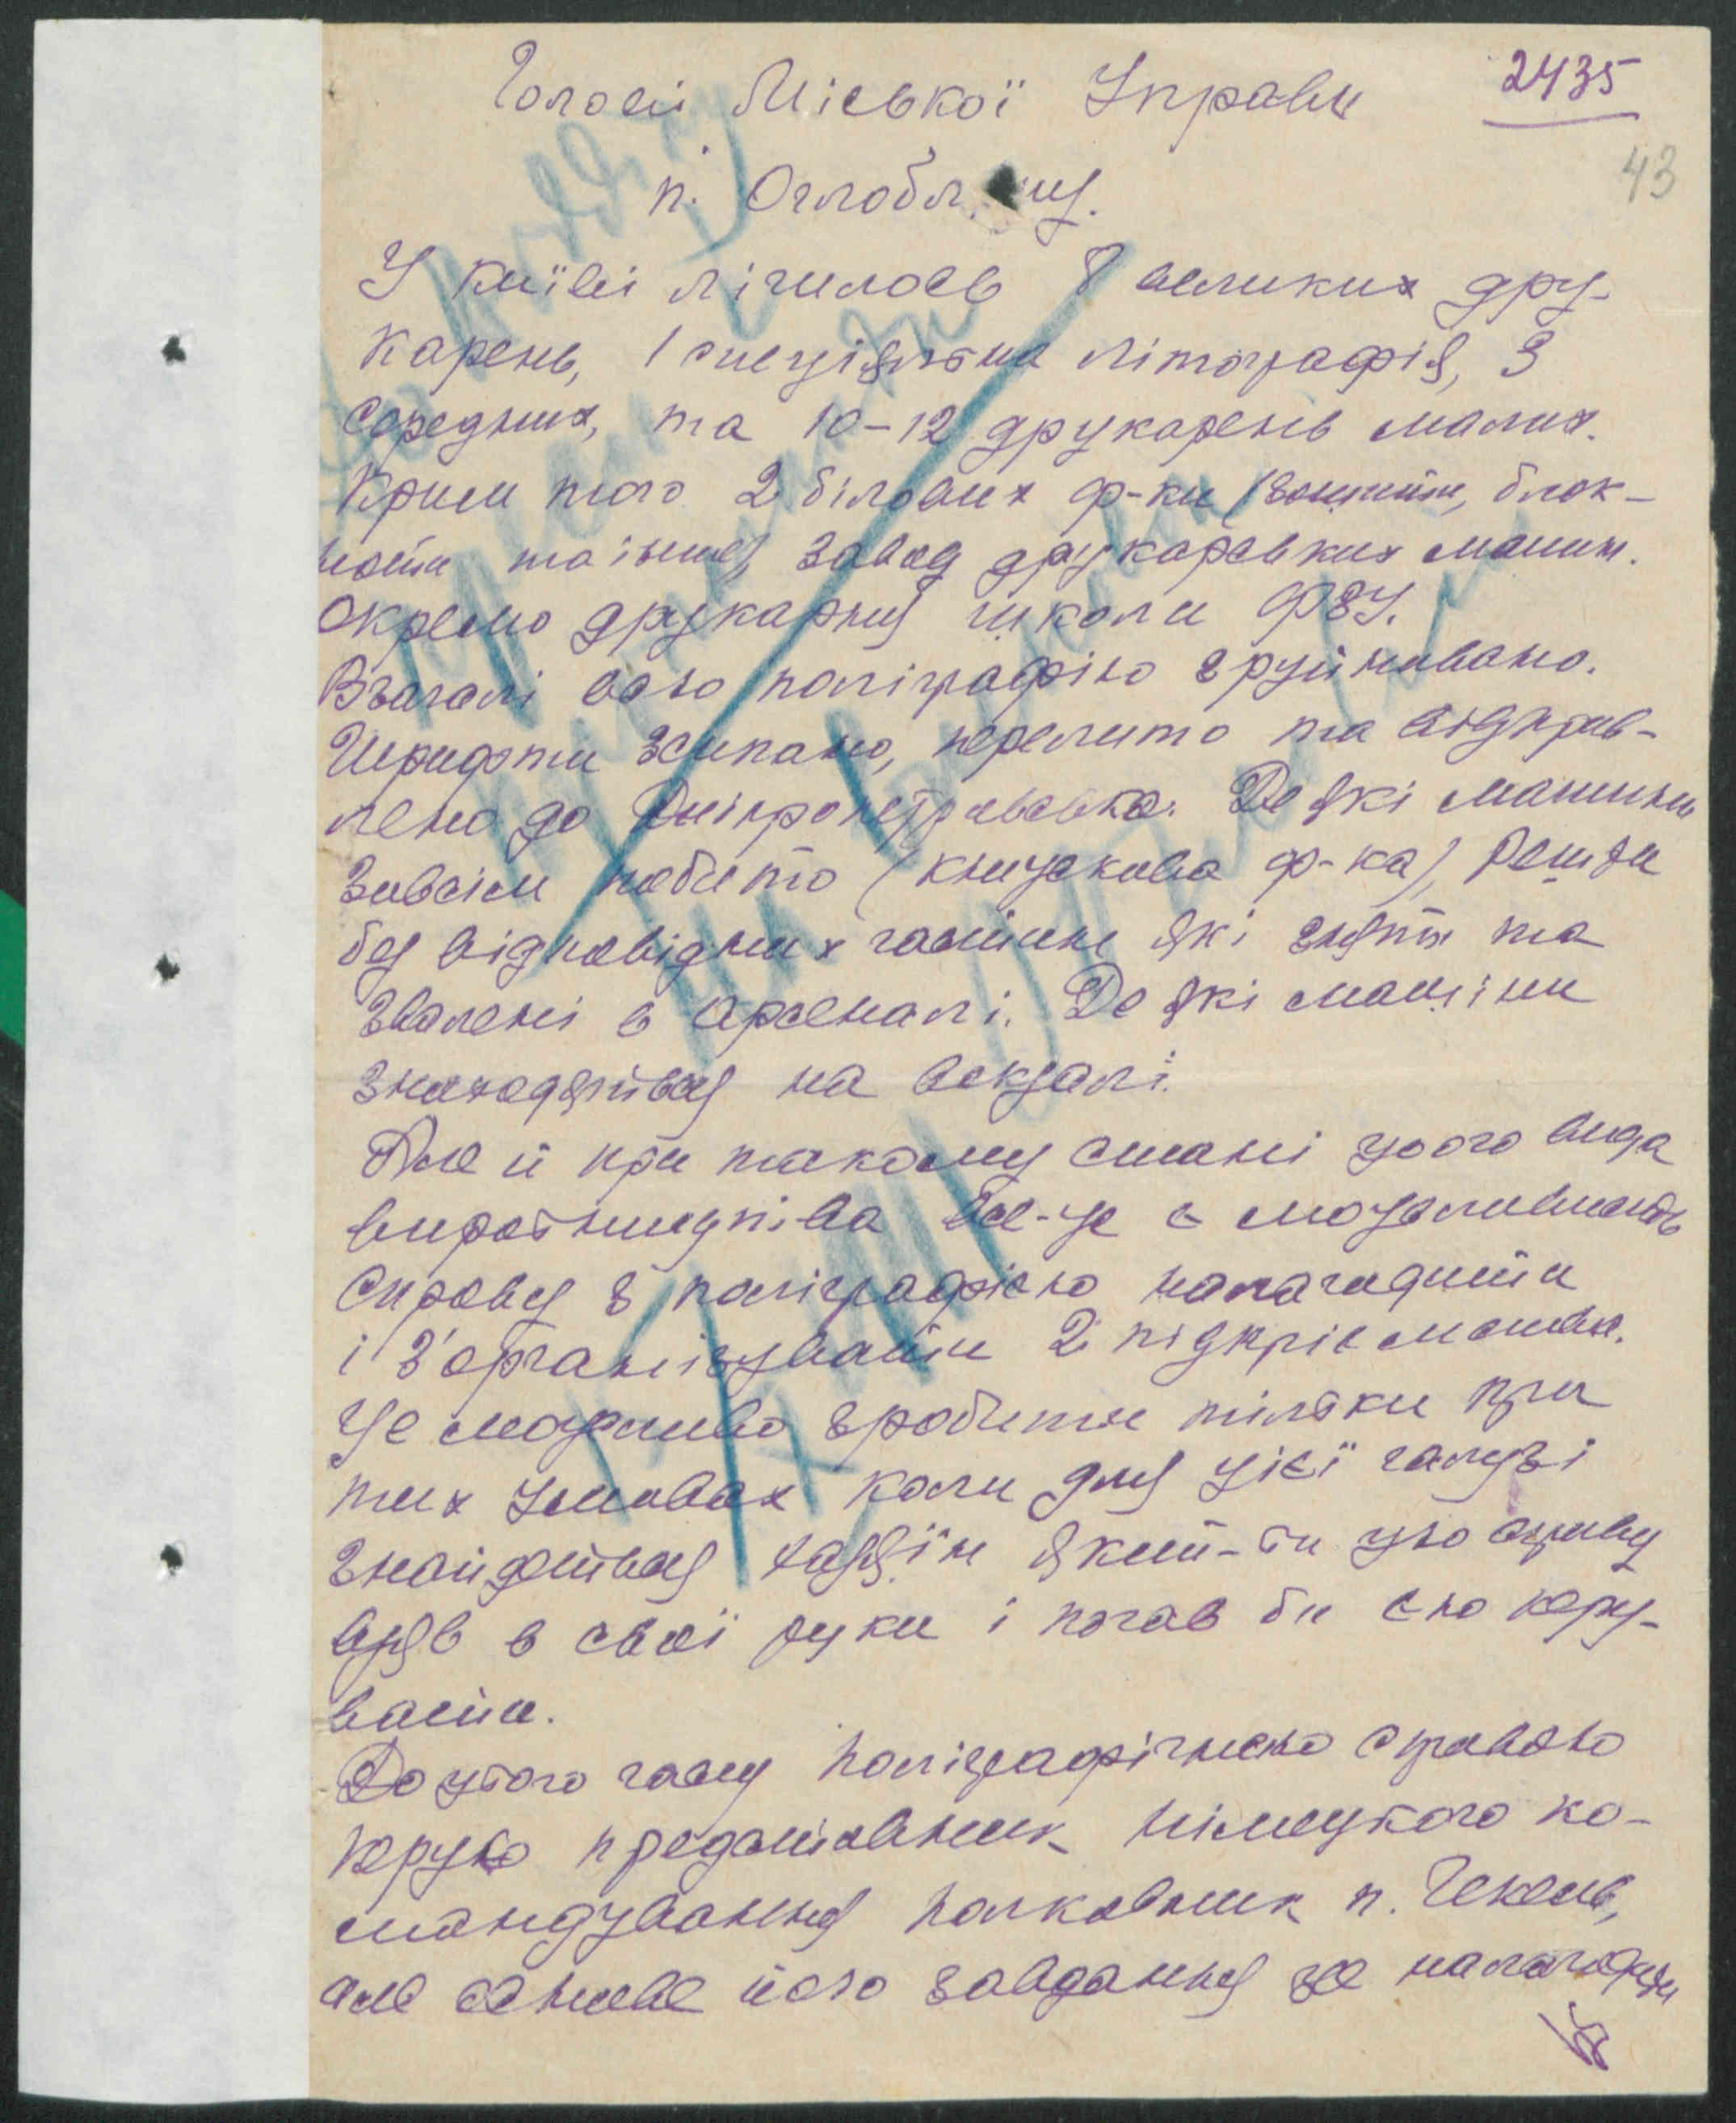 Голові Міської Управи
2435
43
п. Оглобл ну.
У Київі лічилось 8 великих дру-
карень, 1 специяльна літографія, 3
середних, та 10-12 друкарень малих.
Крим того 2 білових ф-ки (зошити, блок-
ноти та інше) завод друкарських машин.
Окремо друкарня школи ФЗУ.
Взагалі всю поліграфію зруйновано.
Шрифти зсипано, перелито та відправ-
лено до Дніпропетровська. Де які машини
зовсім побито (книжкова ф-ка), решта
без відповідних частин які зняті та
звалені в арсеналі. Де які машини
знаходяться на вокзалі.
Але й при такому стані цього вида
виробництва все-це є можливість
справу з поліграфією налагодити
і з'організувати 2 підприємства.
Це можливо зробити тільки при
тих умовах коли для цієї галузі
знайдеться хазяїн який-би цю справу
взяв в свої руки і почав би єю керу-
вати.
До цього часу поліграфічною справою
керує представник німецького ко-
мандування полковник п.
але основне його завдання це налагодити